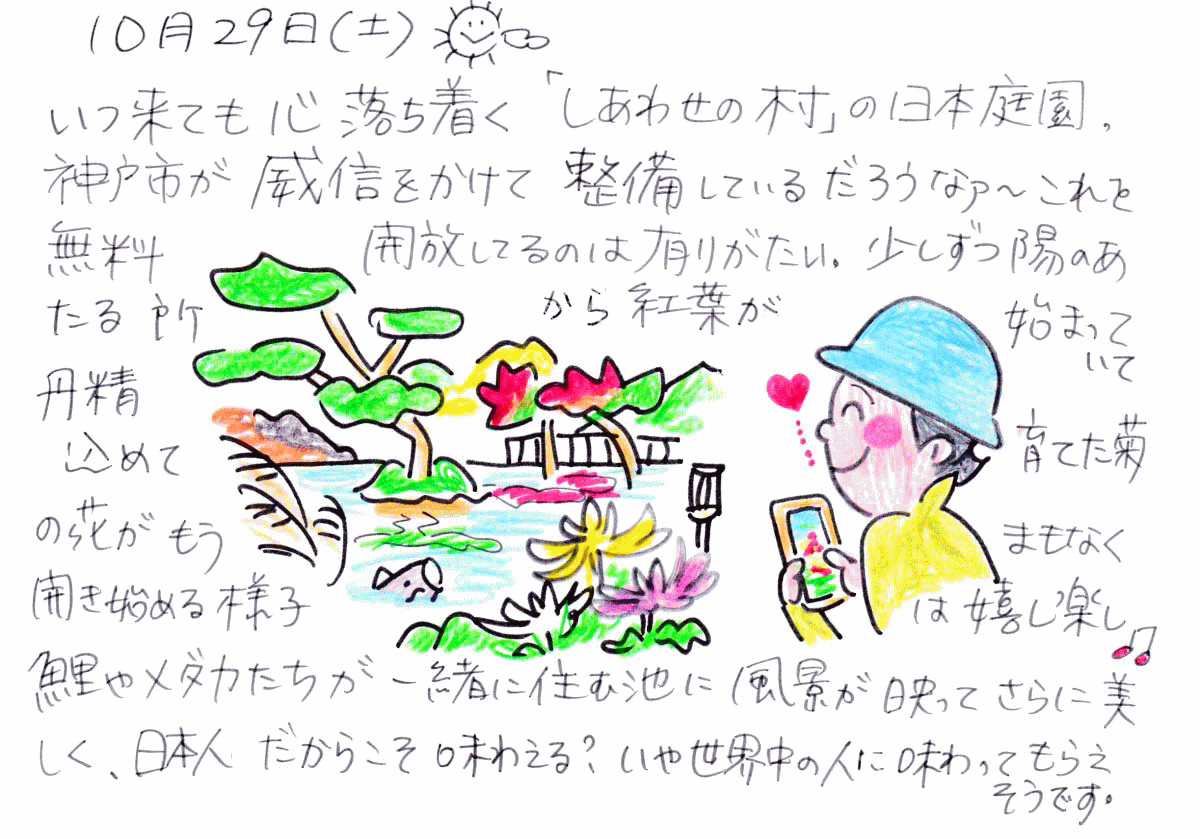 10月29日(土)
いつ来ても心落ち着く「しあわせの村」の日本庭園、
神戸市が威信をかけて整備しているだろうなァ〜これを
無料開放してるのは有りがたい。少しずつ陽のあ
たる所から紅葉が始まって
いて
丹精
込めて育てた菊
の花がもうまもなく
開き始める様子は嬉し楽し
鯉やメダカたちが一緒に住む池に風景が映ってさらに美
しく、日本人だからこそ味わえる?いや世界中の人に味わってもらえ
そうです。